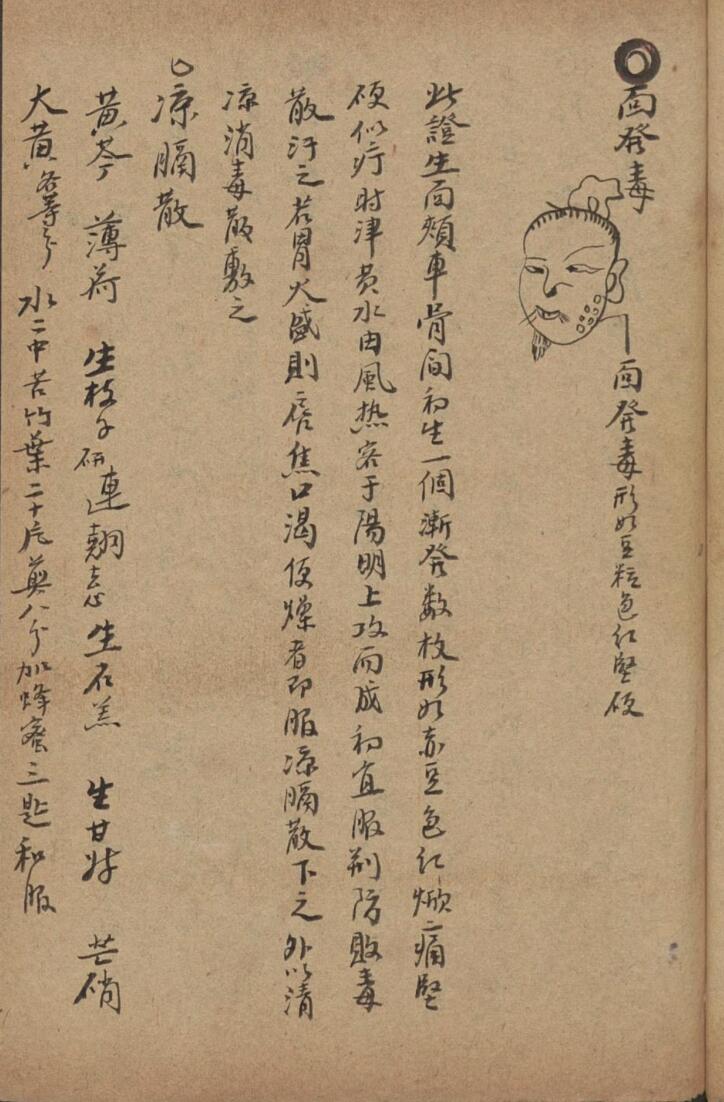 面發毒
面發毒形如豆粒色红堅硬
此證生面頰車骨间初生一個漸發数枚形如赤豆色红焮痛堅
硬似疔时津黄水由風热客于陽明上攻而成初宜服荆防敗毒
散汗之若胃火盛則唇焦口渴便燥者即服凉膈散下之外以清
凉消毒散敷之
凉膈散
黄芩 薄荷 生枝子研 連翹去心 生石羔 生甘草 芒硝
大黄各等分 水二中苦竹葉二十片煎八分加蜂蜜三匙和服